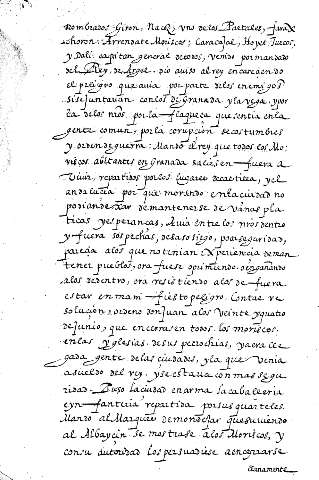 nombrados: Giron, Nacoz, vno de los Partales, farax
choron: Arrendate Moriscos; Caracaxal, Hoyce Turcos,
y Dali capitan general de todos, venido por mandado
del Rey, de Argel. dio auiso al rey encareciendo
el peligro que auia por parte delos enemigos
si se juntauan con los de Granada y la vega, y por
la delos nros. por la flaqueza que sentia en la
gente comun, por la corrupcion de costumbres
y orden de guerra: Mando el rey que todos los Mo-
riscos abitantes en Granada saliesen fuera a
viuir, repartidos por los lugares de castilla, y el
andaluzia por que morando en la ciudad no
podian dexar de mantenerse de vanas pla-
ticas y esperanças, Auia entre los nros dentro
y fuera sospechas, desasosiego, poca seguridad,
parecia alos que no tenian experiencia de man-
tener pueblos, ora fuese oprimiendo, o engañando
alos de dentro, ora resistiendo alos de fuera
estar en manifiesto peligro. Con tal re
solucion; ordeno don Juan alos veinte y quatro
de junio, que encerrasen todos los moriscos
en las yglesias de sus perrochias, ya era lle
gada gente de las ciudades, y la que venia
a sueldo del rey, y se estaua con mas segu
ridad. Puso la ciudad en arma la caballeria
e ynfanteria repartida por sus quarteles.
Mando al Marques de mondejar que subiendo
al Albaycin se mostrase alos Moriscos, y
con su autoridad los persuadiese a encerrarse
llanamente